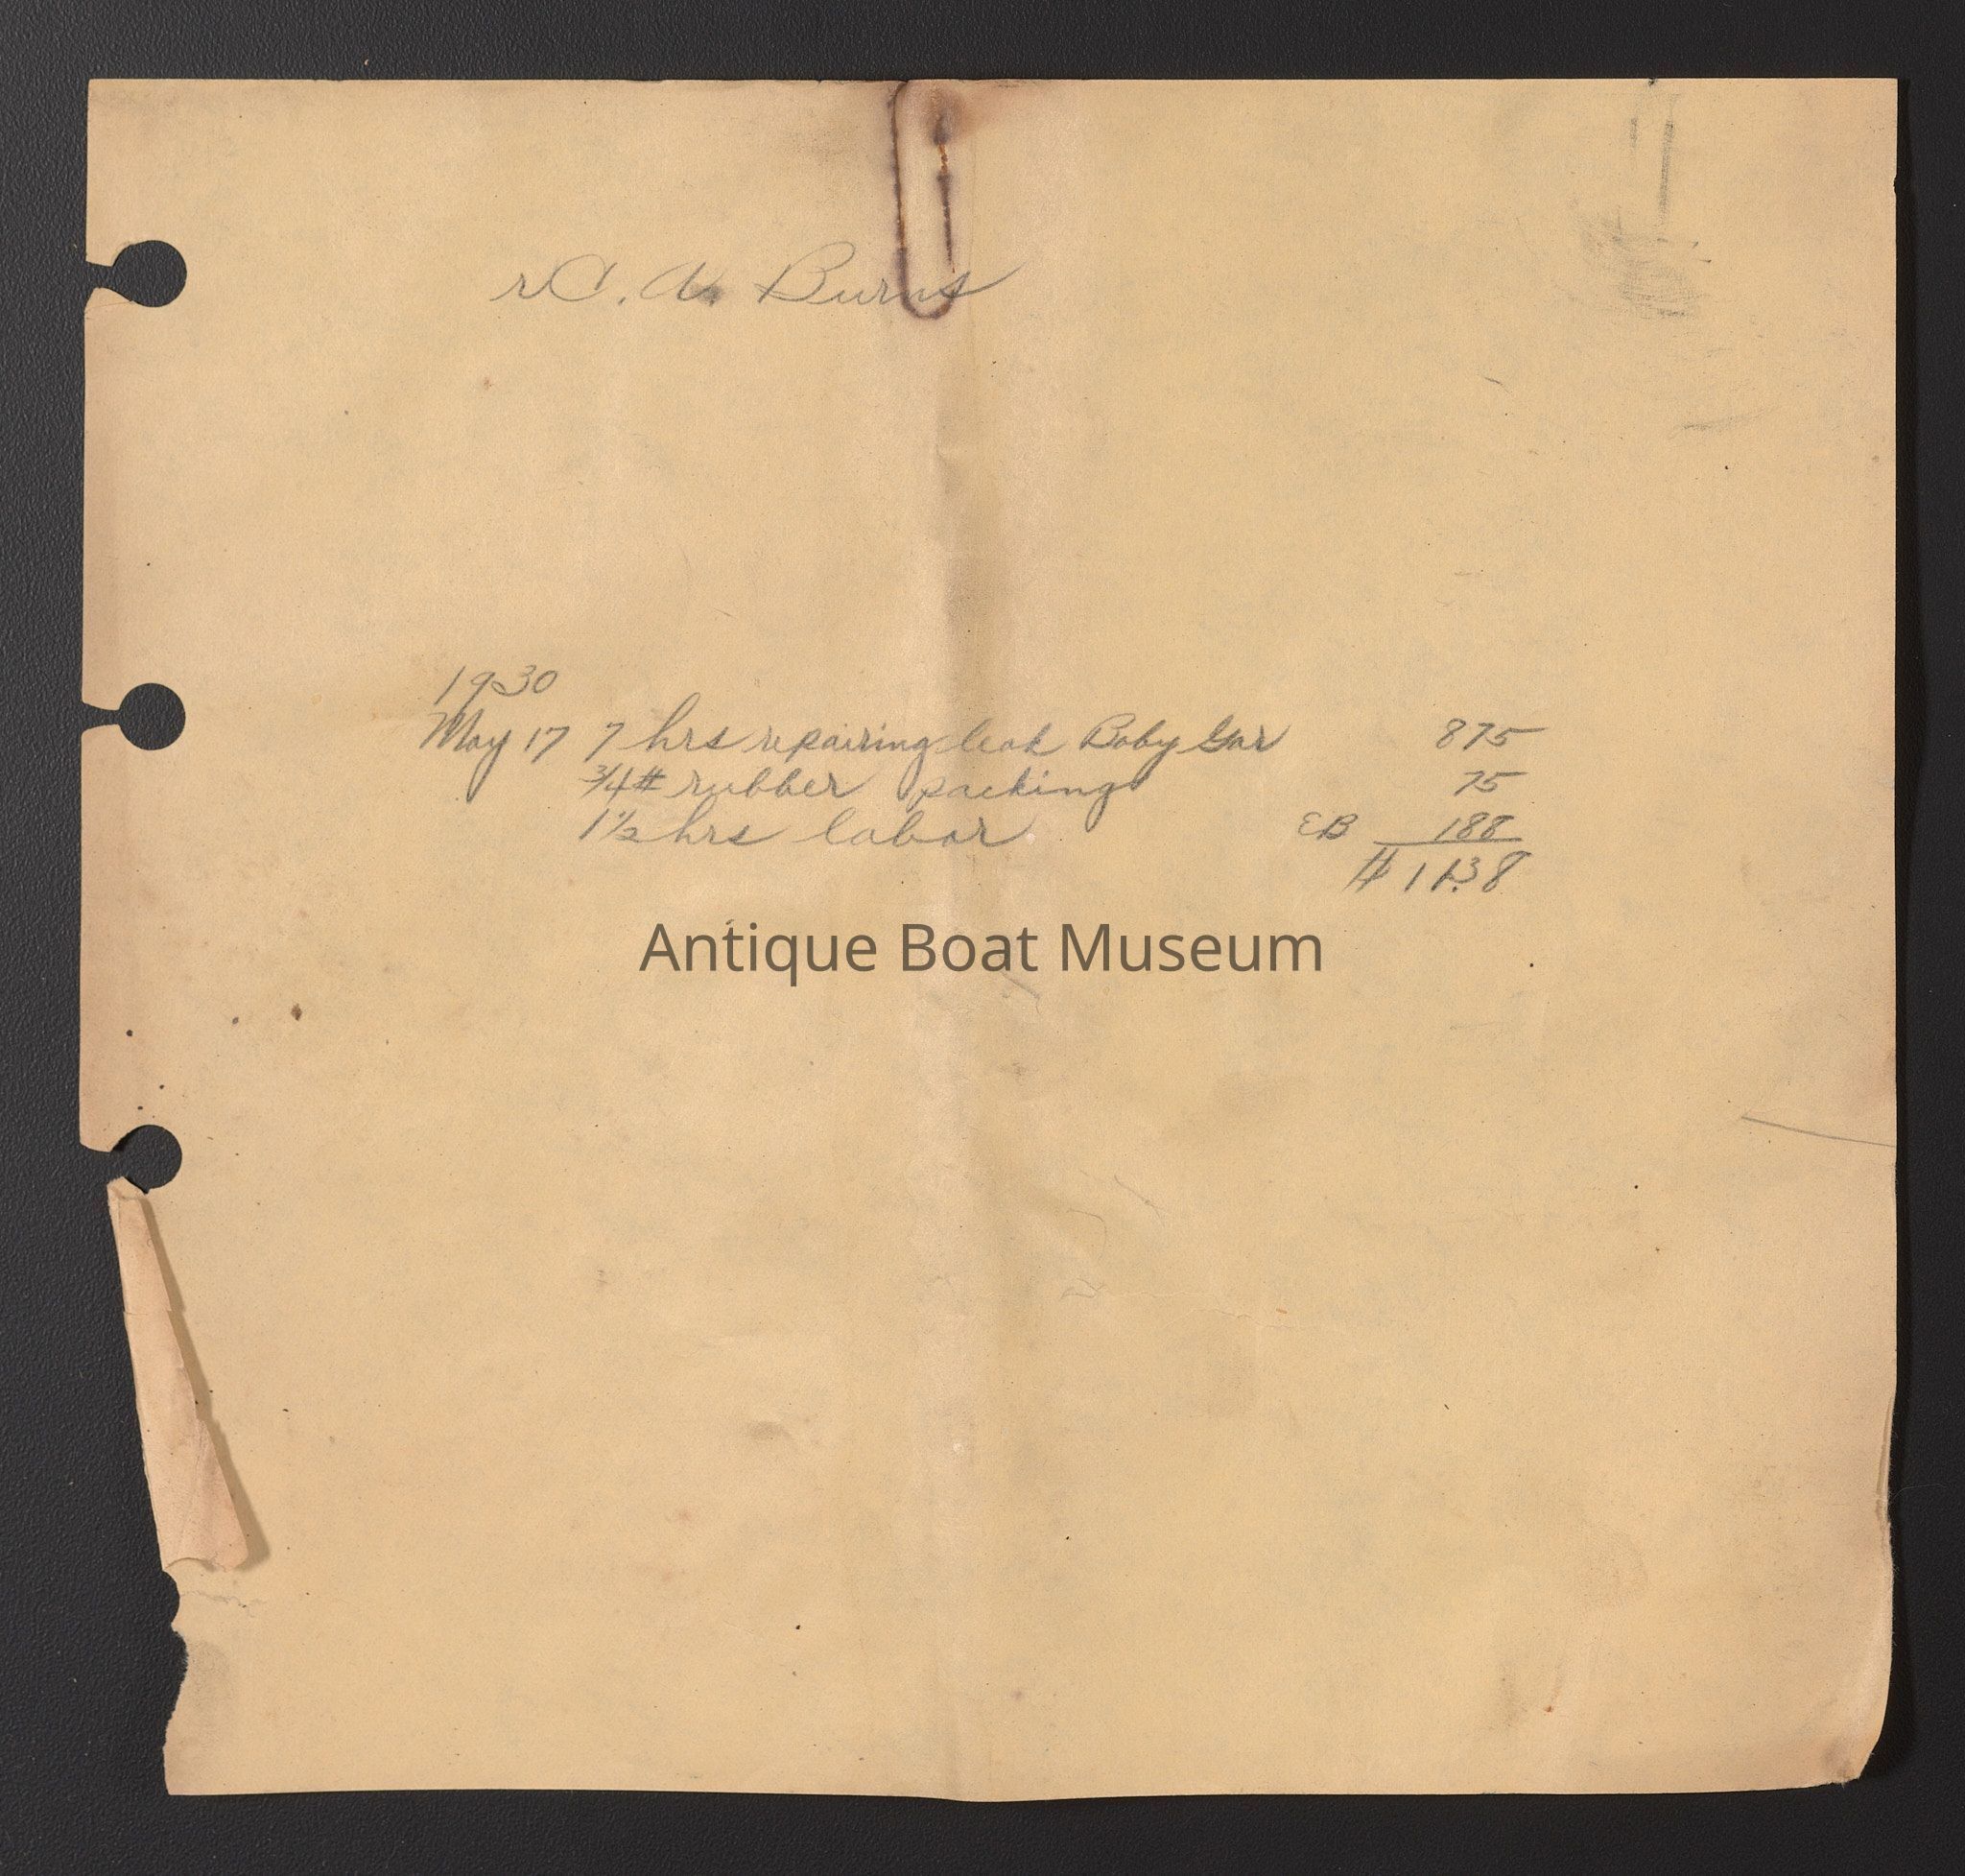 C. A. Burns
1930
May 17 7 hrs repairing leak Baby Gar 875
3/4# rubber packing 75
1 1/2 hrs labor EB 188
$ 11.38
Antique Boat Museum